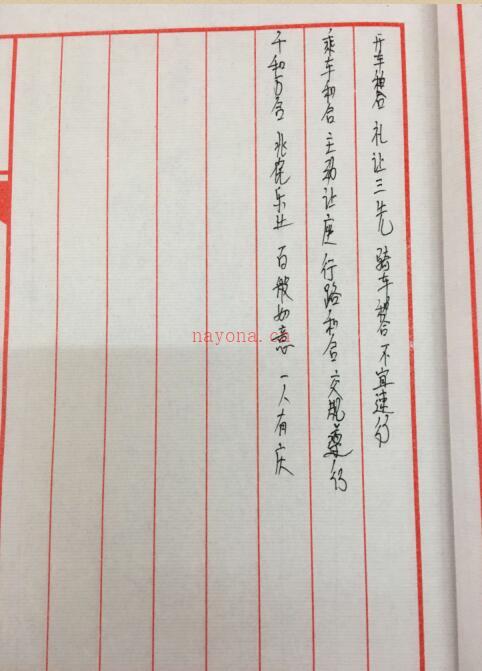 开车和合 礼让三先 骑车和合 不宜速行
乘车和合 主动让座 行路和合 交规遵行
千和万合 兆民乐业 百般如意 一人有庆
nayona.cn